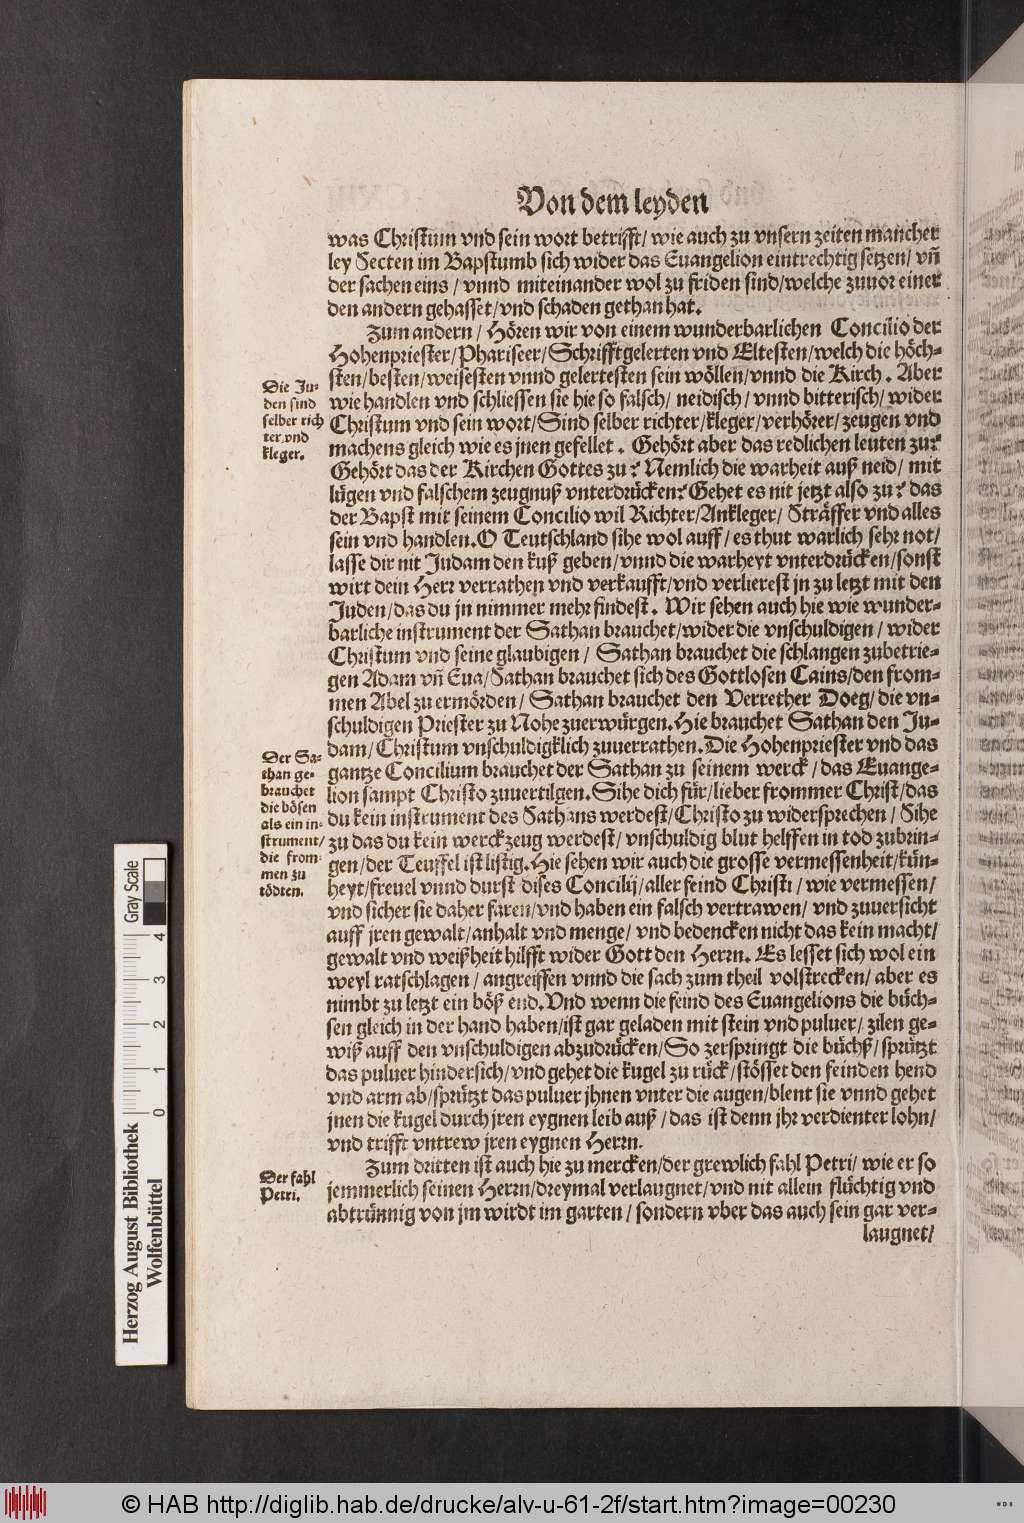 Von dem leyden
was Christum vnd sein wort betrifft/ wie auch zu vnsern zeiten mancher
ley Secten im Bapstumb sich wider das Euangelion eintrechtig setzen/ vñ
der sachen eins / vnnd miteinander wol zu friden sind/welche zuuor einer
den andern gehasset/vnd schaden gethan hat.
Zum andern / Hören wir von einem wunderbarlichen Concilio der
Hohenpriester/Phariseer/Schrifftgelerten vnd Eltesten/welch die höch-
sten/besten/weisesten vnnd gelertesten sein wöllen/vnnd die Kirch. Aber
wie handlen vnd schliessen sie hie so falsch/ neidisch/ vnnd bitterisch/ wider
Christum vnd sein wort/Sind selber richter/kleger/verhörer/zeugen vnd
machens gleich wie es jnen gefellet. Gehört aber das redlichen leuten zu?
Gehört das der Kirchen Gottes zu? Nemlich die warheit auß neid/ mit
lügen vnd falschem zeugnuß vnterdrücken? Gehet es nit jetzt also zu? das
der Bapst mit seinem Concilio wil Richter/Ankleger/ Sträffer vnd alles
sein vnd handlen. O Teutschland sihe wol auff/ es thut warlich sehr not/
lasse dir nit Judam den kuß geben/vnnd die warheyt vnterdrücken/sonst
wirt dein Herr verrathen vnd verkaufft/vnd verlierest jn zu letzt mit den
Juden/das du jn nimmer mehr findest. Wir sehen auch hie wie wunder-
barliche instrument der Sathan brauchet/wider die vnschuldigen / wider
Christum vnd seine glaubigen / Sathan brauchet die schlangen zubetrie-
gen Adam vñ Eua/Sathan brauchet sich des Gottlosen Cains/den from-
men Abel zu ermörden/ Sathan brauchet den Verrether Doeg/ die vn-
schuldigen Priester zu Nohe zuerwürgen. Hie brauchet Sathan den Ju-
dam/Christum vnschuldigklich zuuerrathen. Die Hohenpriester vnd das
gantze Concilium brauchet der Sathan zu seinem werck/das Euange-
lion sampt Christo zuuertilgen. Sihe dich für/lieber frommer Christ/das
du kein instrument des Sathans werdest/Christo zu widersprechen/ Sihe
zu das du kein werckzeug werdest/ vnschuldig blut helffen in tod zubrin-
gen/der Teuffel ist listig. Hie sehen wir auch die grosse vermessenheit/kün-
heyt/freuel vnnd durst dises Concilij/aller feind Christi/ wie vermessen/
vnd sicher sie daher faren/vnd haben ein falsch vertrawen/ vnd zuuersicht
auff jren gewalt/anhalt vnd menge/ vnd bedencken nicht das kein macht/
gewalt vnd weißheit hilfft wider Gott den Herrn. Es lesset sich wol ein
weyl ratschlagen / angreiffen vnnd die sach zum theil volstrecken/ aber es
nimbt zu letzt ein böß end. Vnd wenn die feind des Euangelions die büch-
sen gleich in der hand haben/ist gar geladen mit stein vnd puluer/ zilen ge-
wiß auff den vnschuldigen abzudrücken/So zerspringt die büchß/sprützt
das puluer hindersich/vnd gehet die kugel zu rück/stösset den feinden hend
vnd arm ab/sprützt das puluer jhnen vnter die augen/blent sie vnnd gehet
jnen die kugel durch jren eygnen leib auß/das ist denn jhr verdienter lohn/
vnd trifft vntrew jren eygnen Herrn.
Zum dritten ist auch hie zu mercken/der grewlich fahl Petri/ wie er so
jemmerlich seinen Herrn/dreymal verlaugnet/vnd nit allein flüchtig vnd
abtrünnig von jm wirdt im garten/ sondern vber das auch sein gar ver-
laugnet/
Die Ju-
den sind
selber rich
ter vnd
kleger.
Der Sa-
than ge-
brauchet
die bösen
als ein in-
strument/
die from-
men zu
tödten.
Der fahl
Petri.
Herzog August Bibliothek
Wolfenbüttel
Gray Scale
0 1 2 3 4
© HAB http://diglib.hab.de/drucke/alv-u-61-2f/start.htm?image=00230